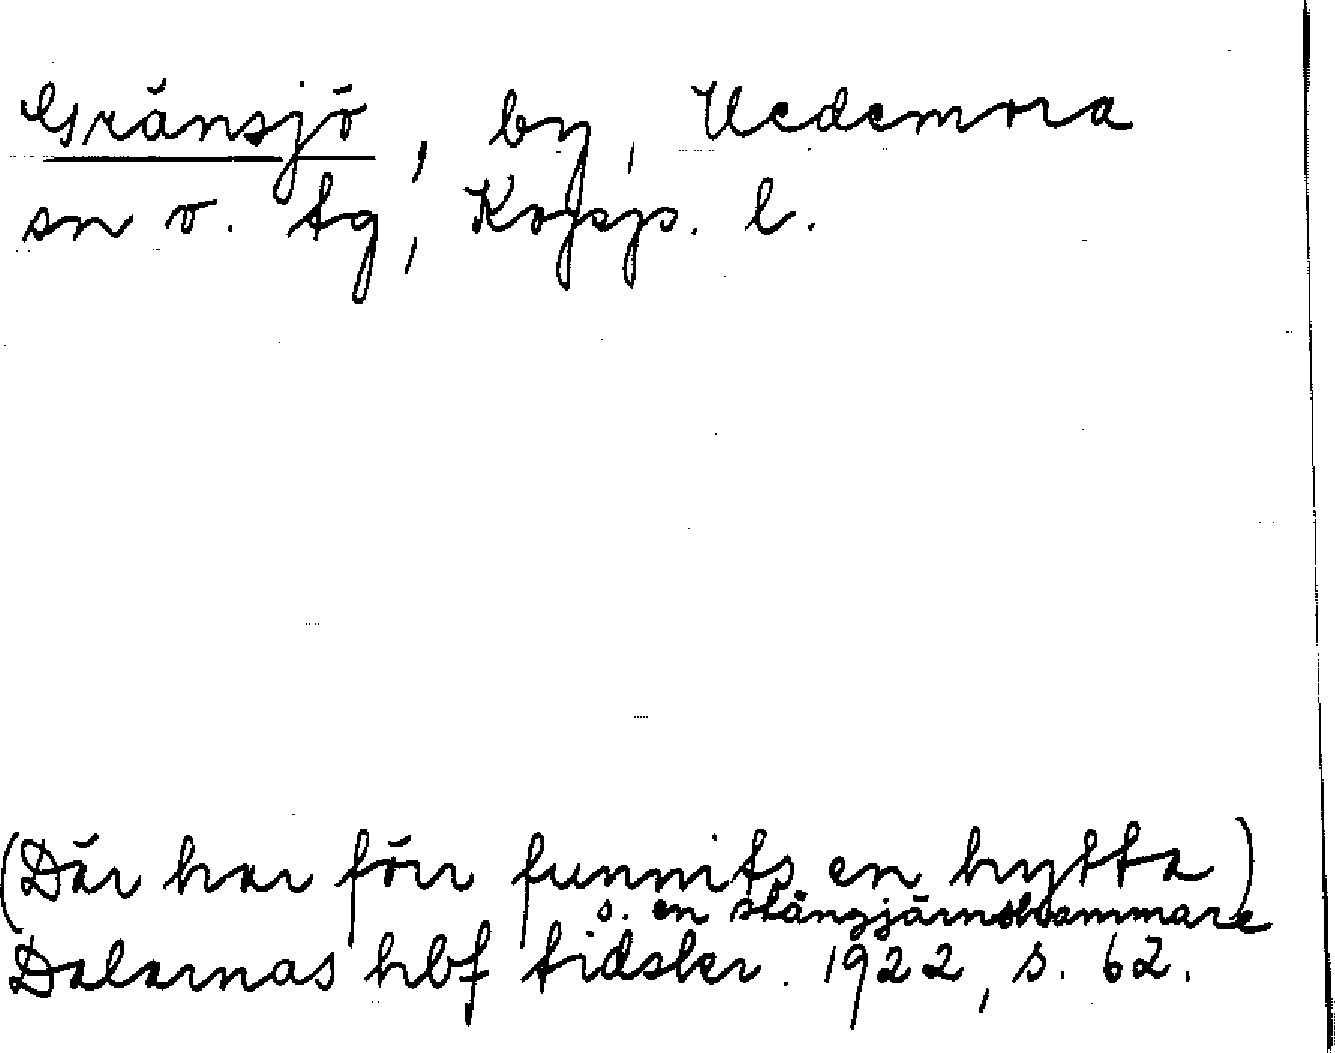 Gränsjö, by, Hedemora
sn o. tg, Kopp. l.
(Där har förr funnits en hytta)
s. en stångjärnshammare
Dalarnas hbf tidskr. 1922, s. 62.